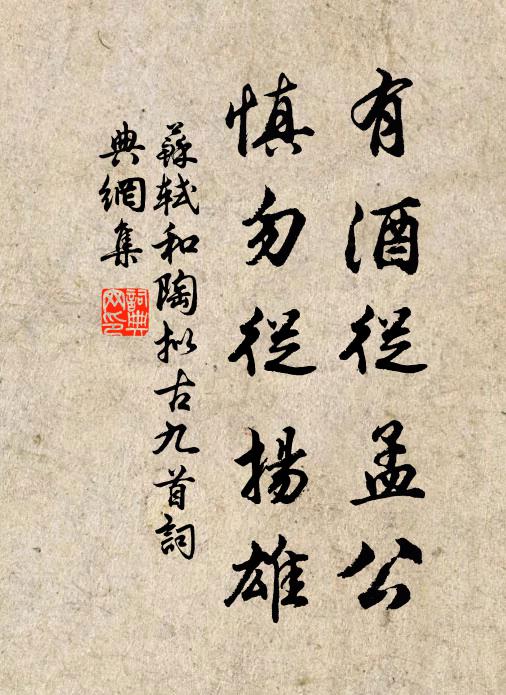 有酒從孟公
慎勿從揚雄
蘇軾和陶拟古九首詞
典網集
詞典網印